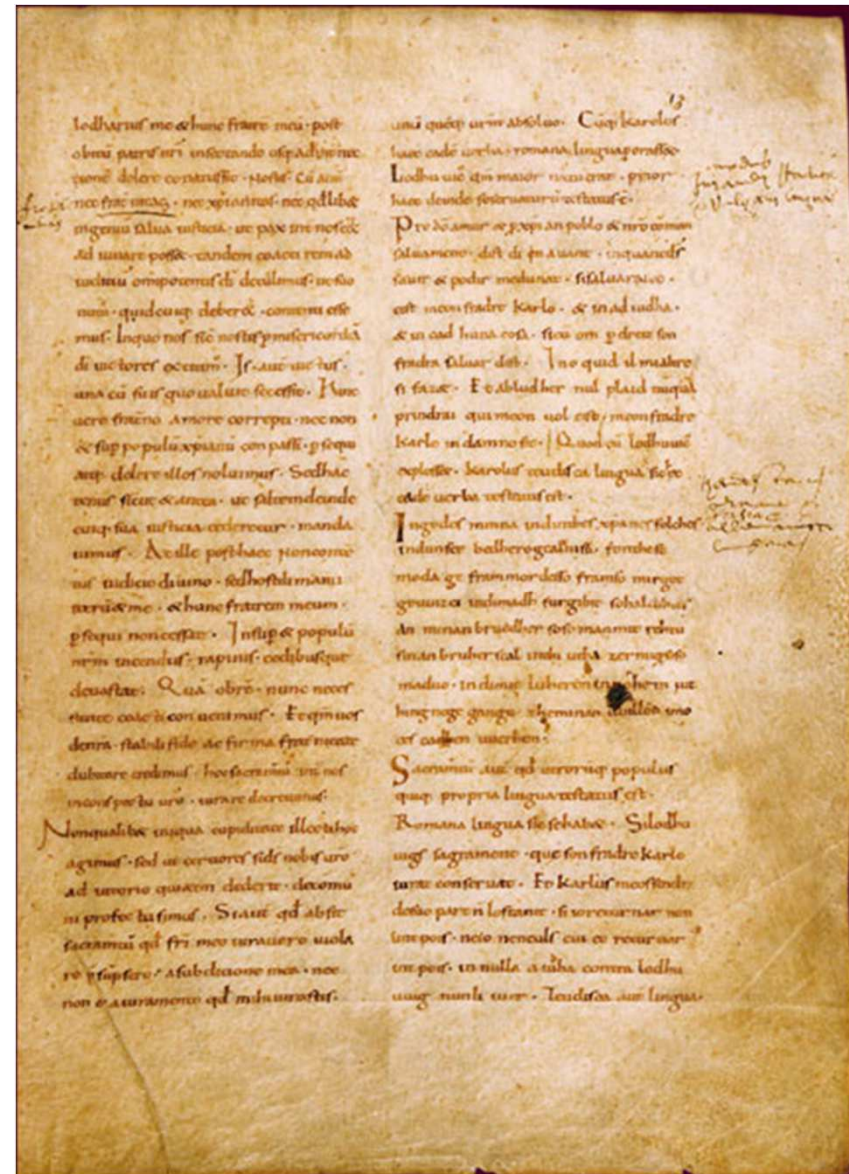 lodharius me & hunc fratrē meū · post
obitū patris nr̄i insectando usq; ad inter nec
tionē delere conatus sit · Nostis · Cū aut
nec frat̄nitas · nec xp̄ianitas · nec qd̄lib&
ingeniū salua iusticia · ut pax int̄ nos ēē&
ad iuuare poss& · tandem coacti rem ad
iudiciū omnipotentis dī detulimus · ut suo
nutu · quid cuiq; deber& · contenti esse
mus · In quo nos sic̄ nostis p misericordiā
dī uictores extitim̄ · Is · aut uictus ·
una cū suis quo ualuit secessit · Hinc
uero frat̄no amore correpti · nec non
& sup populū xp̄ianū conpassi · p sequi
atq; delere illos noluimus · Sed hac
tenus sicut & antea · ut saltem deinde
cuiq; sua iusticia cederetur · manda
uimus · At ille post haec non conten
tus iudicio diuino · sed hostili manu
iterū & me · & hunc fratrem meum ·
p sequi non cessat · Insup & populū
nr̄m incendiis · rapinis · cedibusque
deuastat; Quā obrē · nunc neces
sitate coacti conuenimus · Et qm̄ uos
de nr̄a · stabili fide ac firma frat̄nitate
dubitare credimus · hoc sacramtū int̄ nos
in conspectu uro · iurare decreuimus ·
Non qualibet iniqua cupiditate illecti hoc
agimus · sed ut certiores si ds̄ nobis uro
ad iutorio quietem dederit · de comū
ni profectu simus · Si aut qd̄ absit
sacramtū qd̄ fri meo iurauero uiola
re p̄supsero · a subdicione mea · nec
non & a iuramento qd̄ mihi iurastis ·
13
unū quēq; urm̄ absoluo · Cūq; karolus
haec eadē uerba · romana lingua porass& ·
Lodhuuic̄ qm̄ maior natu erat · prior
haec deinde se seruaturū testatus ē ·
Pro dō amur & p xp̄ian poblo & nr̄o cōmun
saluament · dist di in auant · in quant dš
sauir & podir me dunat · si saluarai eo ·
cist meon fradre Karlo · & in ad iudha ·
& in cad huna cosa · sicū om p dreit son
fradra saluar dift · Ino quid il mi altre
si faz& · Et ab ludher nul plaid nūquā
prindrai qui meon uol cist meon fradre
Karle in damno sit · Quod cū lodhuuic̄
explesset · karolus teudisca lingua sic ec
eadē uerba testatus est ·
In godes minna indinthes xp̄anes folches
indunser bedhero gealtnissi · fonthese
moda ge frammordesso framso mirgot
geuuizci indimadh furgibit sohaldihtes
an minan bruodher soso manmit rehtu
sinan bruher scal inthi utha zermigsoso
maduo · indimit luheren inno thein iut
hing nege gango zheminan uuillon imo
ces cadhen uuerhen ·
Sacramtū aut qd̄ utrorūq; populus
quiq; propria lingua testatus est ·
Romana lingua sic se hab& · Silodhu
uigs sagrament · que son fradre Karlo
iurat conseruat · Et Karlus meossendra
desuo part n̄ lostanit · si io returnar non
lint pois · neio neneuls cui eo returnar
int pois · in nulla aiuha contra lodhu
uuig nunli iuer · Teudisca aut lingua ·